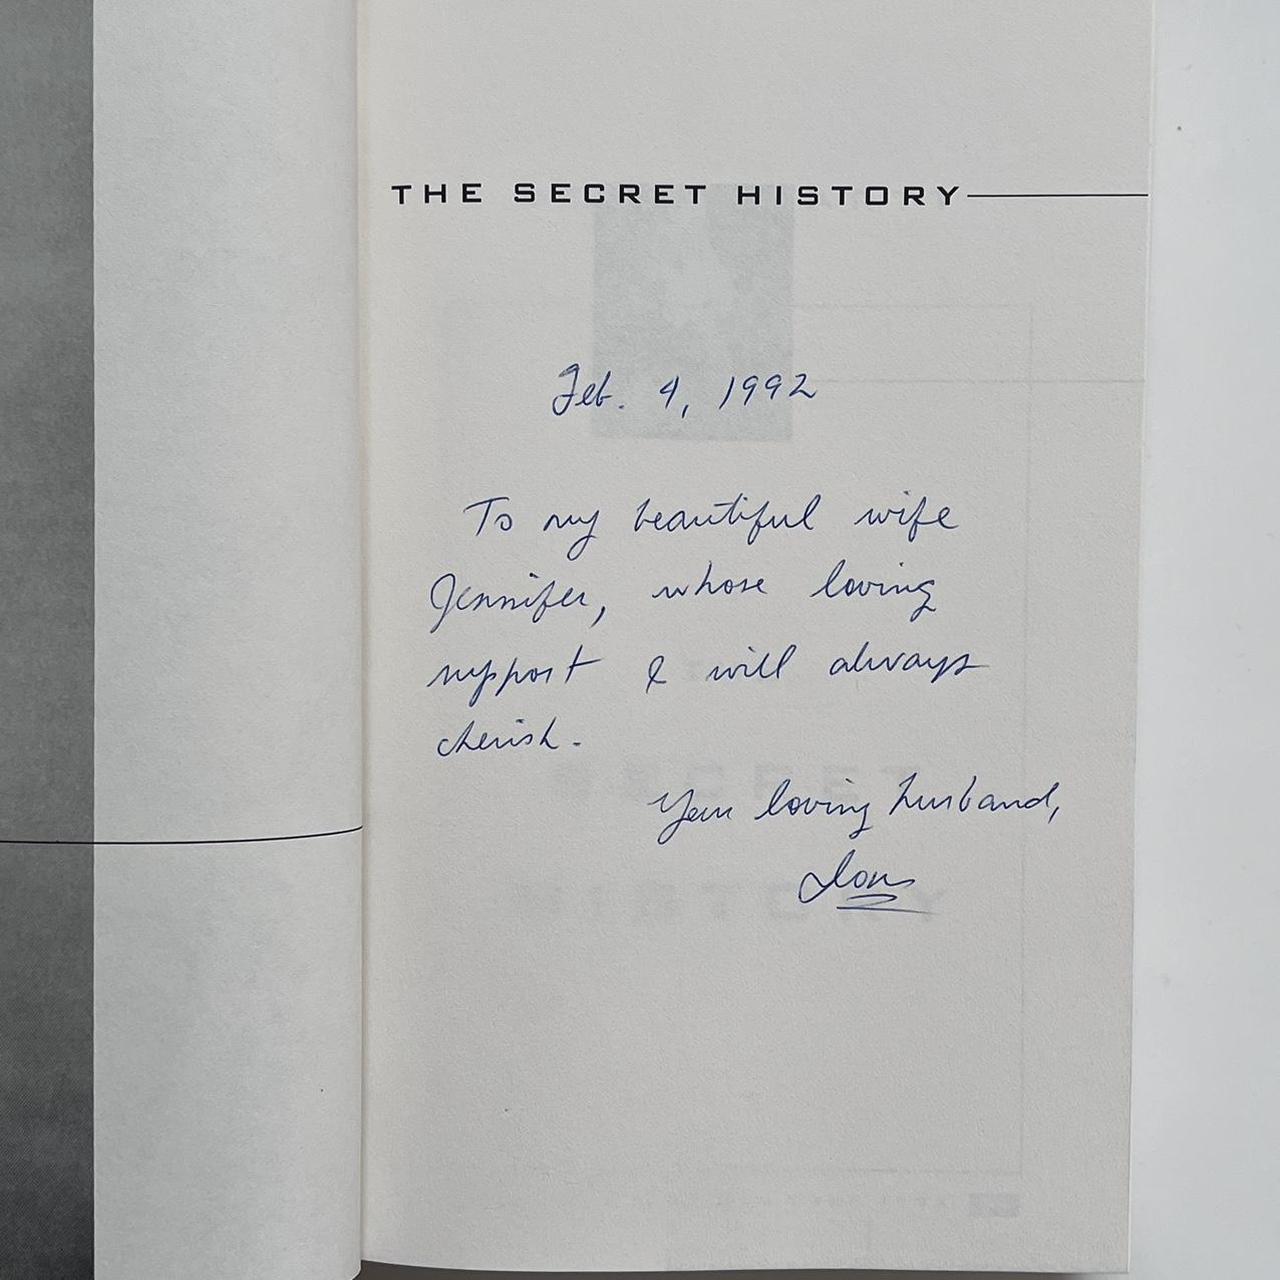 THE SECRET HISTORY
Feb. 4, 1992
To my beautiful wife
Jennifer, whose loving
support I will always
cherish.
Your loving husband,